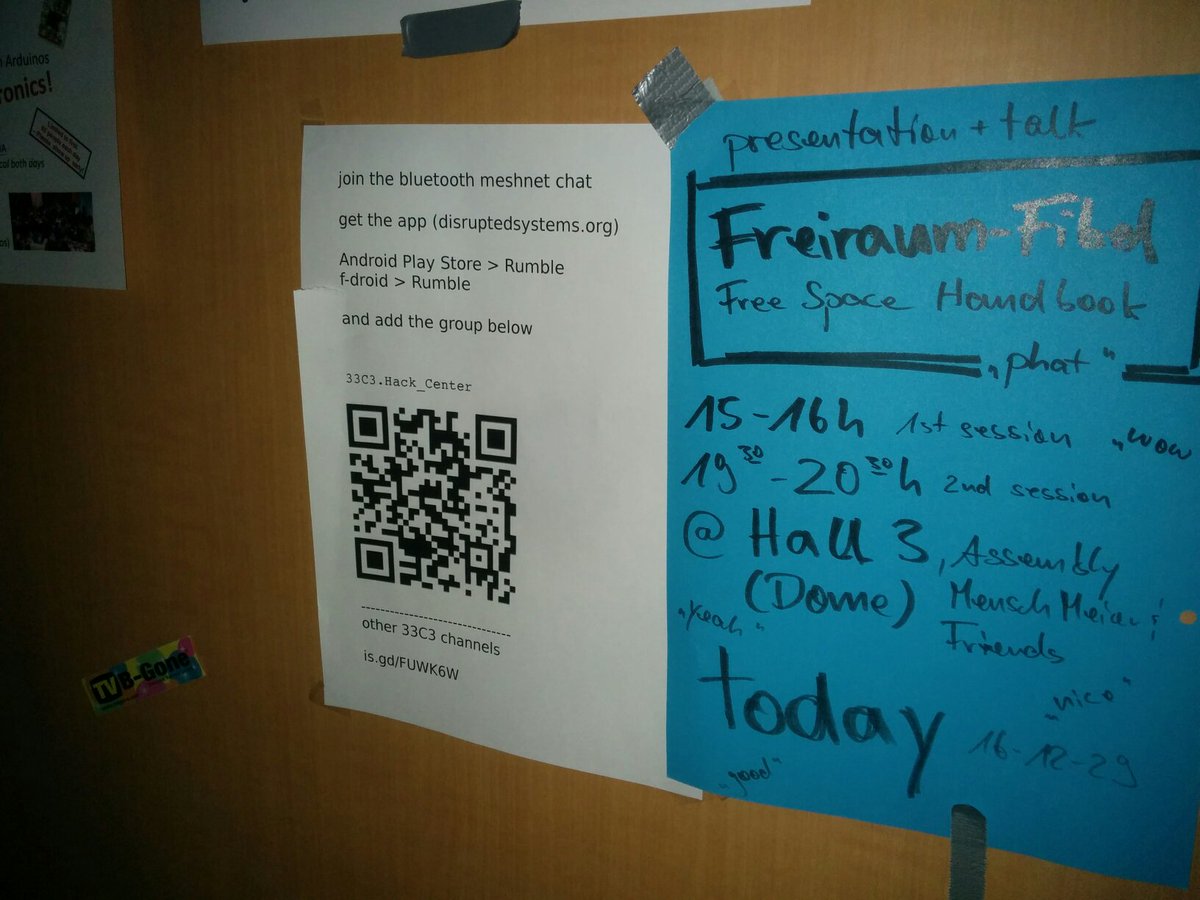 Arduinos
onics!
col both days
join the bluetooth meshnet chat
get the app (disruptedsystems.org)
Android Play Store > Rumble
f-droid > Rumble
and add the group below
33C3.Hack_Center
other 33C3 channels
is.gd/FUWK6W
TV B-Gone
presentation + talk
Freiraum-Fibel
Free Space Handbook
"phat"
15-16h 1st session "wow
19³⁰-20³⁰h 2nd session
@ Hall 3, Assembly
(Dome) Mensch Meier &
"yeah" Friends
today "nice"
16-12-29
"good"